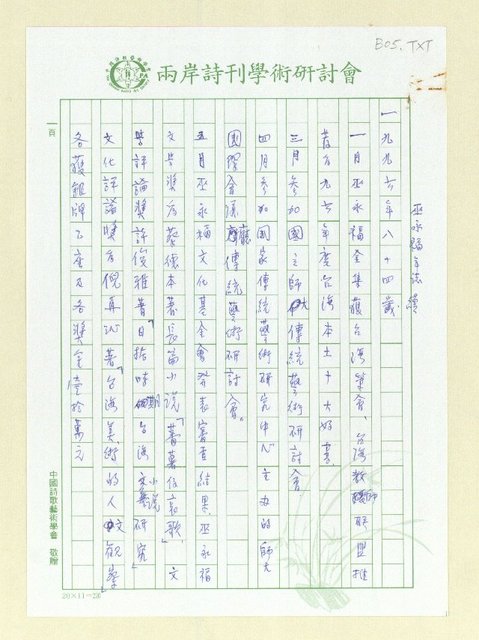 B05.TXT
兩岸詩刊學術研討會
巫永福
一九九六年八十四歲
一月巫永福全集獲台灣筆會、台灣教師聯盟推
薦為九六年度台灣本土十大好書
三月參加國立師大傳統藝術研討會
四月參加國家傳統藝術研究中心主辦的師大
國際會議廳傳統藝術研討會。
五月巫永福文化基金會發表審查結果,巫永福
文學獎為蔡德本著長篇小說「蕃薯仔哀歌」文
學評論獎許俊雅著「日據時期台灣小說研究」
文化評論獎為倪再沁著「台灣美術的人文觀察」
各獲銀牌乙座及各獎金壹拾萬元
頁
中國詩歌藝術學會 敬贈
20×11=220